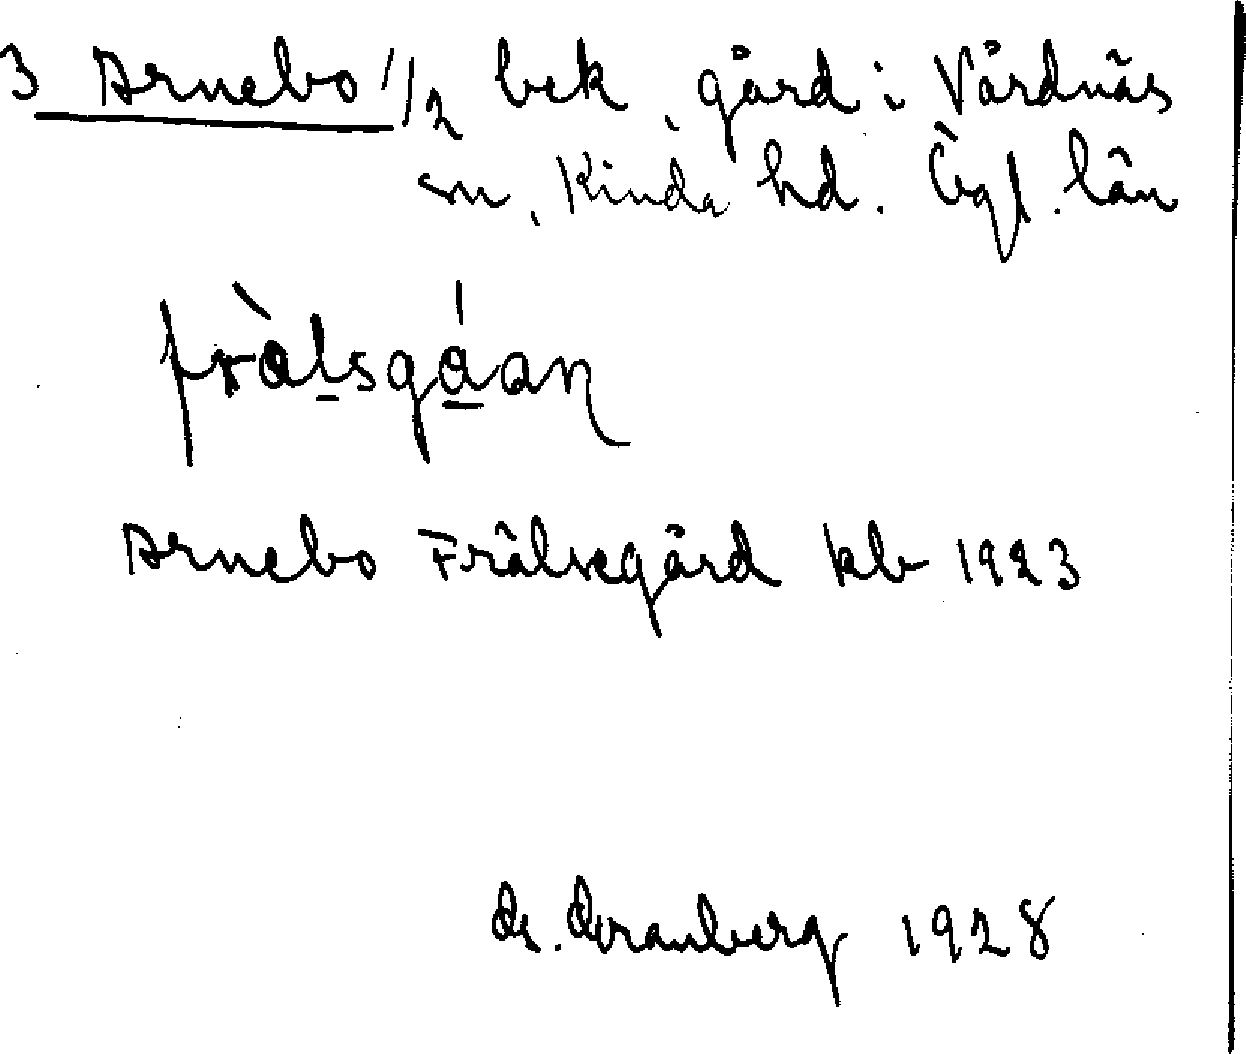 3 Arnebo 1/2 bek, gård i Vårdnäs
sn, Kinda hd. Ögl. län
fràlsgáan
Arnebo Frälsegård kb 1923
1928